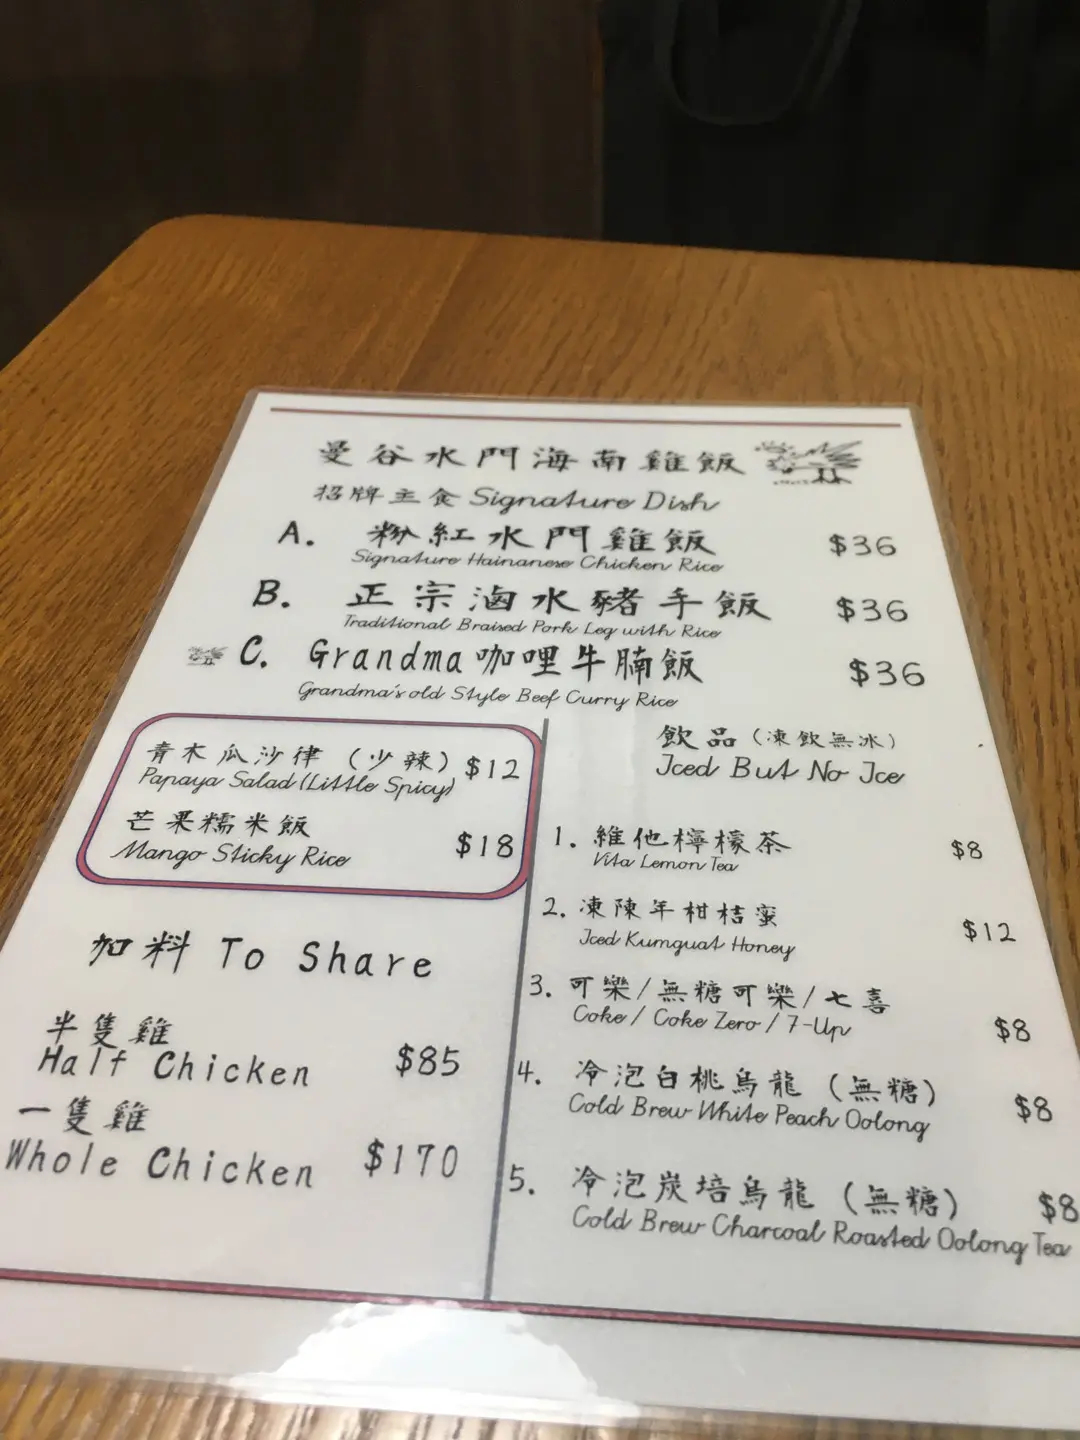 曼谷水門海南雞飯
招牌主食 Signature Dish
A. 粉紅水門雞飯 $36
Signature Hainanese Chicken Rice
B. 正宗滷水豬手飯 $36
Traditional Braised Pork Leg with Rice
C. Grandma咖哩牛腩飯 $36
Grandma's old Style Beef Curry Rice
青木瓜沙律（少辣）$12
Papaya Salad (Little Spicy)
芒果糯米飯 $18
Mango Sticky Rice
加料 To Share
半隻雞
Half Chicken $85
一隻雞
Whole Chicken $170
飲品（凍飲無冰）
Iced But No Ice
1. 維他檸檬茶 $8
Vita Lemon Tea
2. 凍陳年柑桔蜜 $12
Iced Kumguat Honey
3. 可樂/無糖可樂/七喜 $8
Coke / Coke Zero / 7-Up
4. 冷泡白桃烏龍（無糖） $8
Cold Brew White Peach Oolong
5. 冷泡炭培烏龍（無糖） $8
Cold Brew Charcoal Roasted Oolong Tea